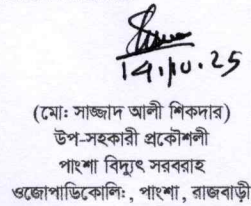 14.10.25
(মো: সাজ্জাদ আলী শিকদার)
উপ-সহকারী প্রকৌশলী
পাংশা বিদ্যুৎ সরবরাহ
ওজোপাডিকোলি:, পাংশা, রাজবাড়ী